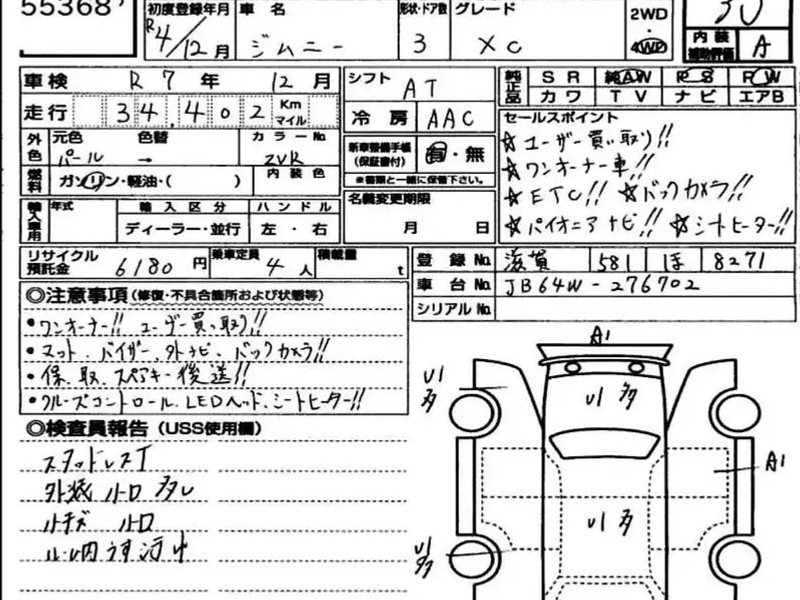 55368
初度登録年月 車名 形状・ドア数 グレード 2WD
R4/12月 ジムニー 3 XC 4WD
内装補助評価 A
車検 R7年 12月 シフト AT
純正品 SR 純AW PS PW
カワ TV ナビ エアB
走行 34,402 Km マイル 冷房 AAC
外色 元色 色替 カラーNo.
パール → ZVR
新車整備手帳(保証書付) 有・無
※書類と一緒に保管下さい。
燃料 ガソリン・軽油・( ) 内装色
セールスポイント
☆ユーザー買い取り!!
☆ワンオーナー車!!
☆ETC!! ☆バックカメラ!!
☆パイオニアナビ!! ☆シートヒーター!!
輸入車用 年式 輸入区分 ハンドル
ディーラー・並行 左・右
名義変更期限
月 日
リサイクル預託金 6180円 乗車定員 4人 積載量 t
登録No. 滋賀 581 ほ 8271
車台No. JB64W-276702
シリアルNo.
◎注意事項(修復・不具合箇所および状態等)
・ワンオーナー!! ユーザー買い取り!!
・マット、バイザー、外ナビ、バックカメラ!!
・保、取、スペアキー後送!!
・クルーズコントロール、LEDヘッド、シートヒーター!!
◎検査員報告(USS使用欄)
スタッドレスT
外装 小キロ
小キズ
内うす汚れ
A1
U1 多
U1 多
A1
U1 多
U1